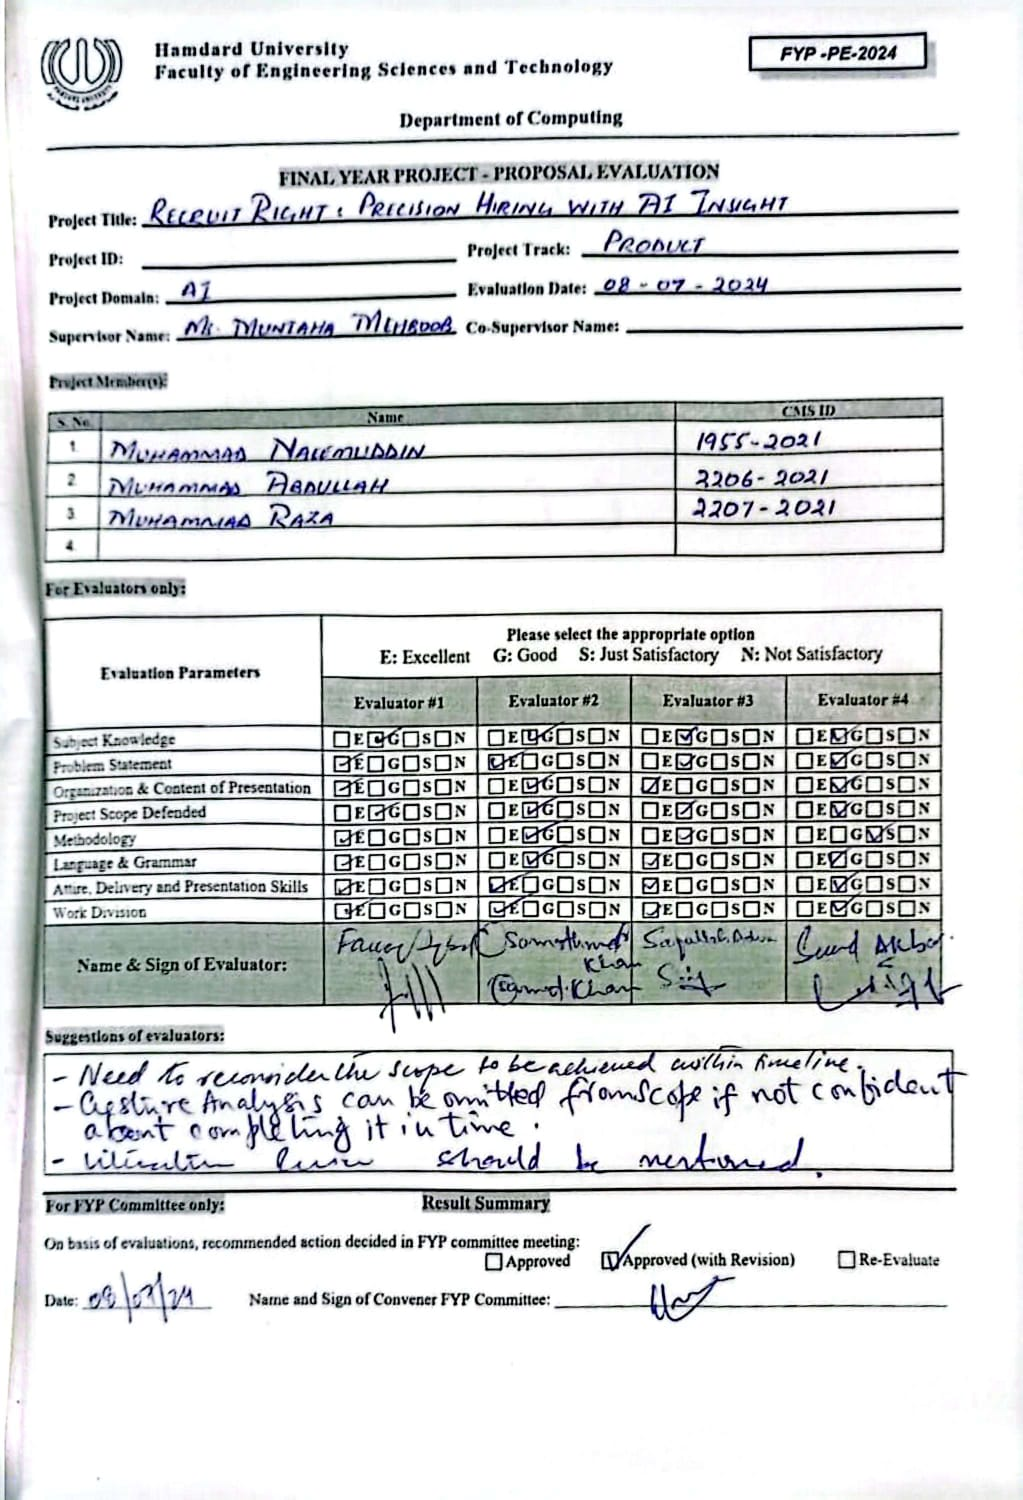 Hamdard University
Faculty of Engineering Sciences and Technology
FYP -PE-2024
Department of Computing
FINAL YEAR PROJECT - PROPOSAL EVALUATION
Project Title: RECRUIT RIGHT : PRECISION HIRING WITH AI INSIGHT
Project ID:
Project Track: PRODUCT
Project Domain: AI
Evaluation Date: 08 - 07 - 2024
Supervisor Name: MS. MUNTAHA MEHBOOB Co-Supervisor Name:
Project Member(s):
S. No. Name CMS ID
1. MUHAMMAD NAEEMUDDIN 1955-2021
2 MUHAMMAD ABDULLAH 2206-2021
3. MUHAMMAD RAZA 2207-2021
4.
For Evaluators only:
Evaluation Parameters
Please select the appropriate option
E: Excellent G: Good S: Just Satisfactory N: Not Satisfactory
Evaluator #1 Evaluator #2 Evaluator #3 Evaluator #4
Subject Knowledge E G S N E G S N E G S N E G S N
Problem Statement E G S N E G S N E G S N E G S N
Organization & Content of Presentation E G S N E G S N E G S N E G S N
Project Scope Defended E G S N E G S N E G S N E G S N
Methodology E G S N E G S N E G S N E G S N
Language & Grammar E G S N E G S N E G S N E G S N
Attire, Delivery and Presentation Skills E G S N E G S N E G S N E G S N
Work Division E G S N E G S N E G S N E G S N
Name & Sign of Evaluator: Khan
Khan
Suggestions of evaluators:
- Need to reconsider the scope to be achieved within timeline.
- Gesture Analysis can be omitted from scope if not confident
about completing it in time.
- Literature Review should be mentioned.
For FYP Committee only: Result Summary
On basis of evaluations, recommended action decided in FYP committee meeting:
Approved Approved (with Revision) Re-Evaluate
Date: 08/07/24 Name and Sign of Convener FYP Committee: